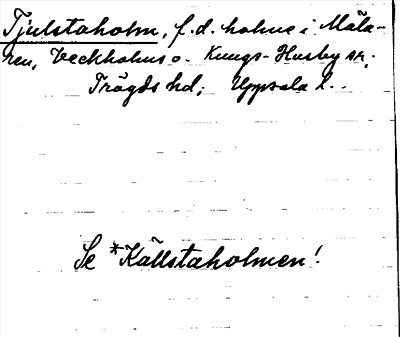 Tjulstaholm, f.d. holme i Mäla-
ren, Veckholms o. Kungs-Husby sn,
Trögds hd, Uppsala l.
Se *Källstaholmen!